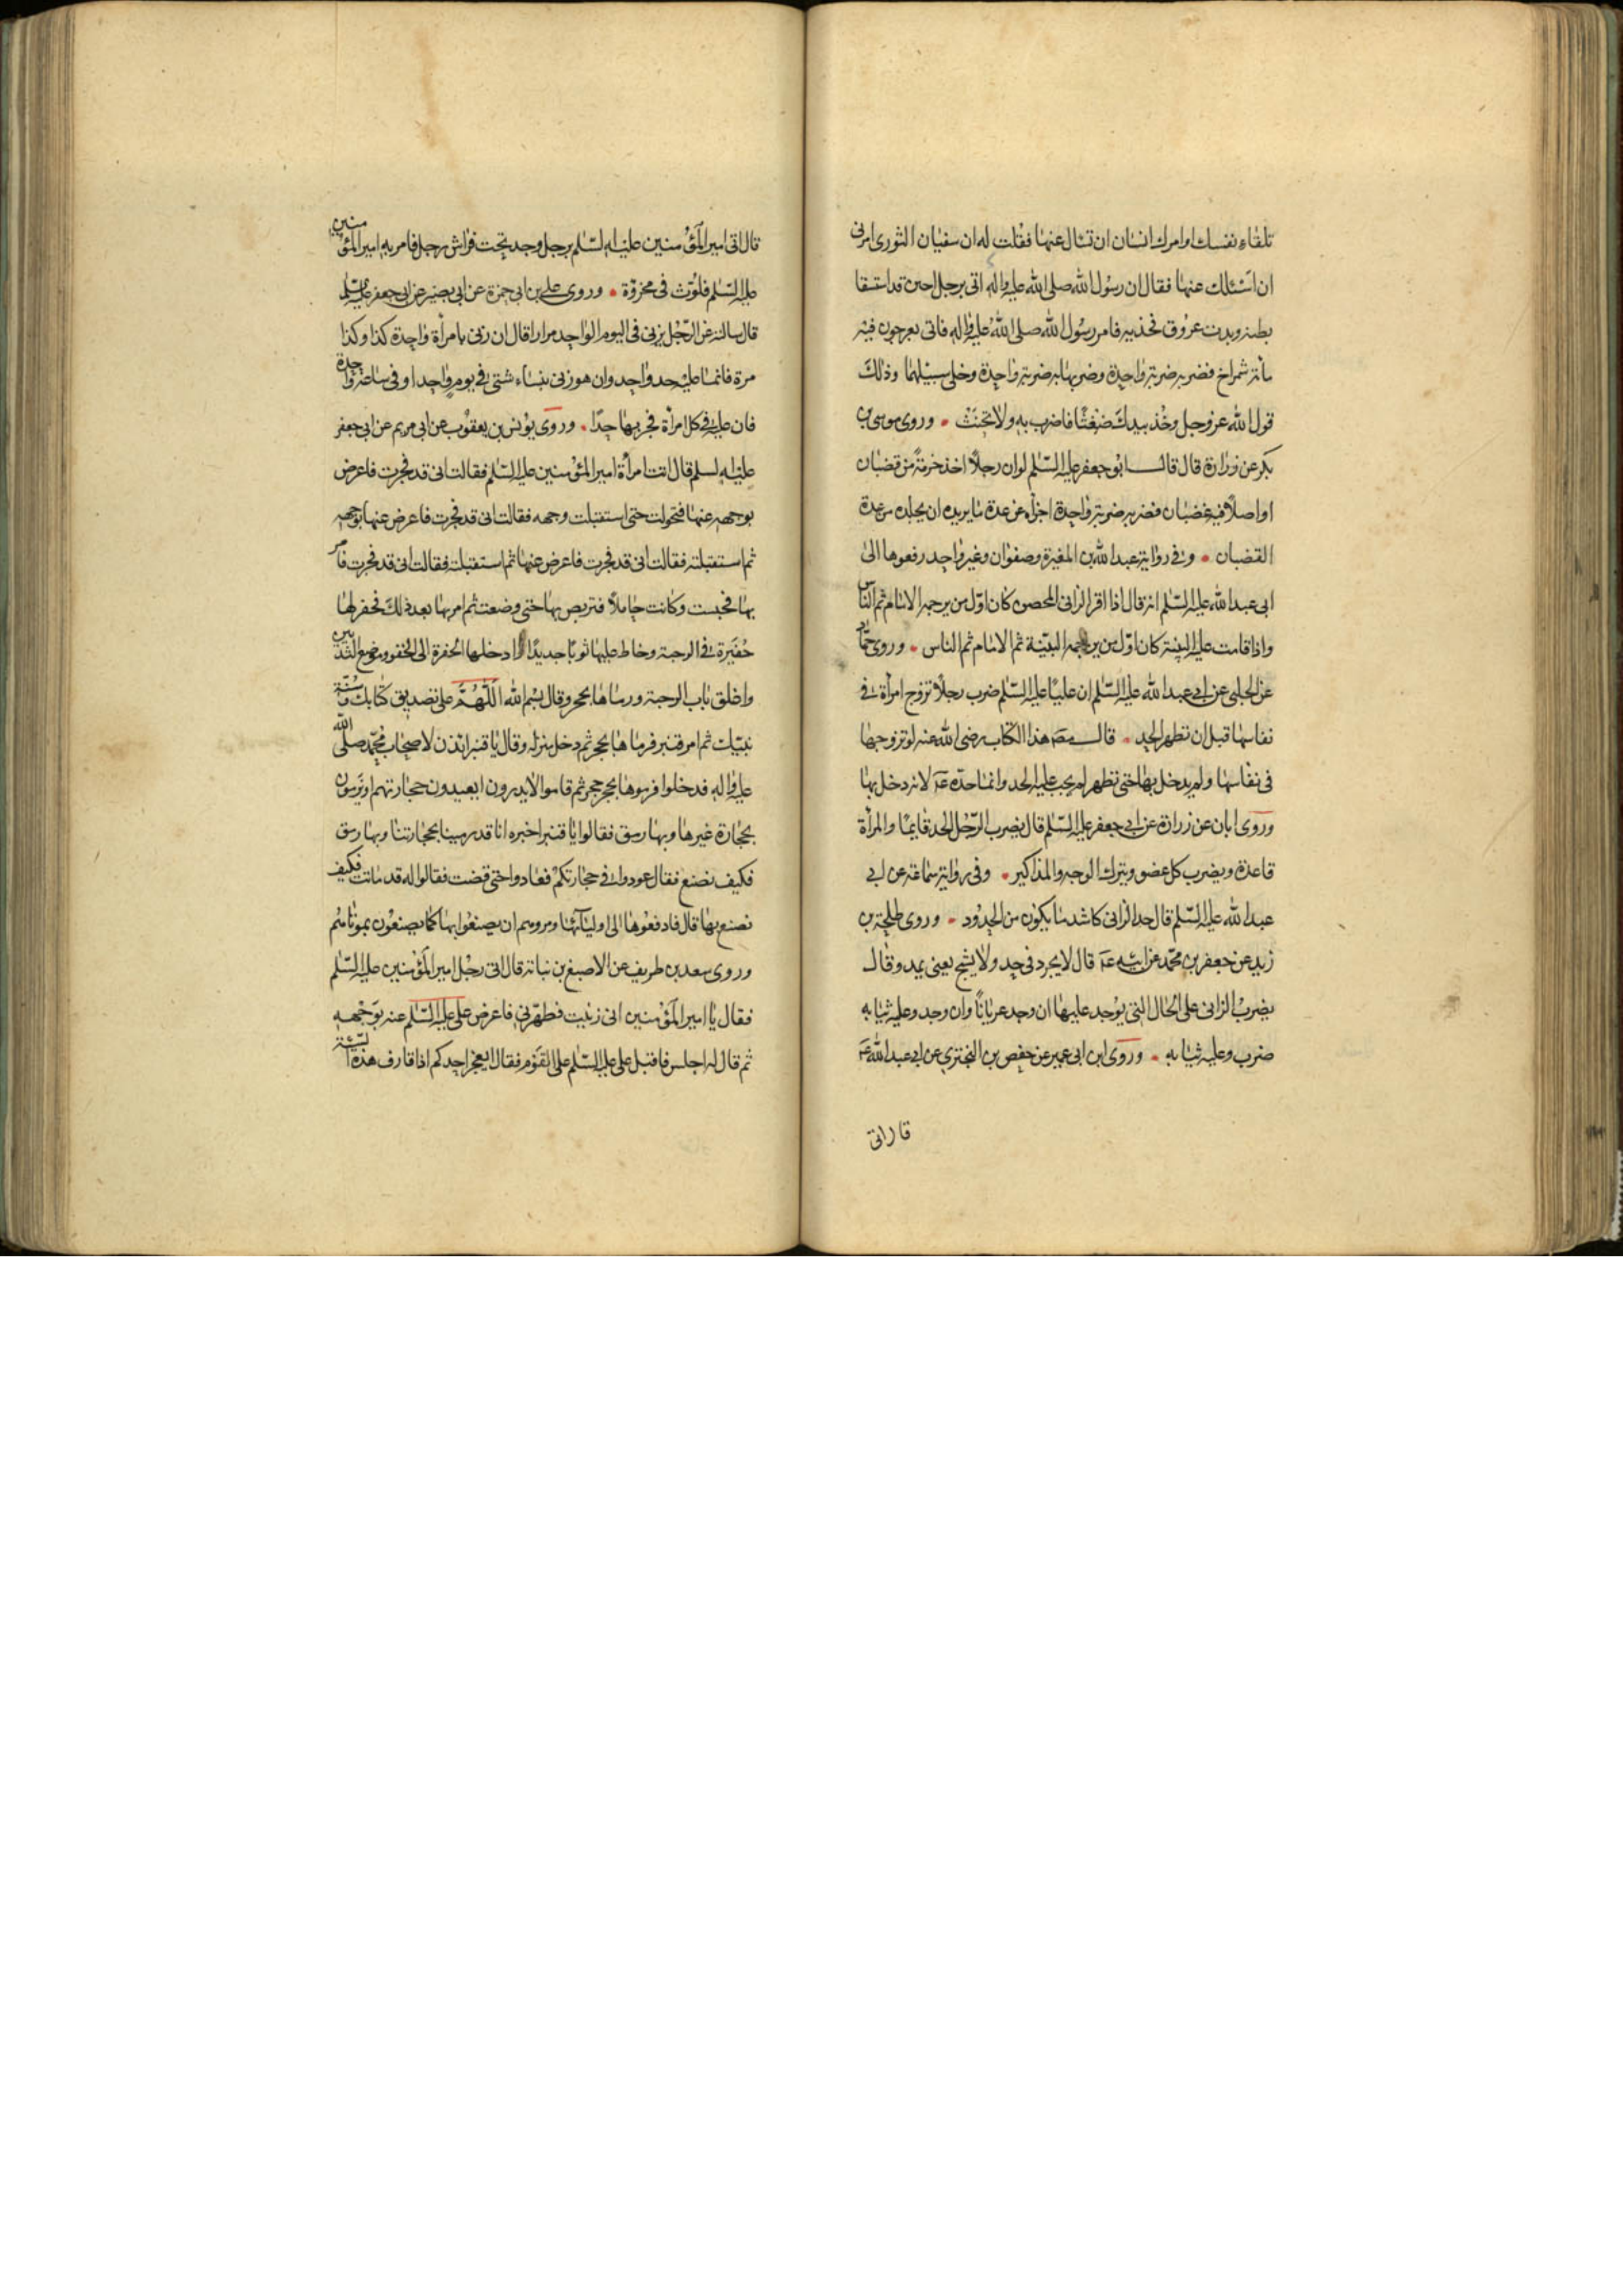 تلقاء نفسك او امرك انسان ان تسأل عنها فقلت له ان سفيان الثورى امرنى
ان اسئلك عنها فقال ان رسول الله صلى الله عليه واله اتى برجل احبن قد استسقا
بطنه وبدت عروق فخذيه فامر رسول الله صلى الله عليه واله فاتى بعرجون فيه
مائة شمراخ فضربه ضربة واحدة وضربها به ضربة واحدة وخلى سبيلهما وذلك
قول الله عز وجل وخذ بيدك ضغثا فاضرب به ولا تحنث وروى موسى بن
بكر عن زرارة قال قال ابو جعفر عليه السلم لو ان رجلا اخذ حزمة من قضبان
او اصلا فيه قضبان فضربه ضربة واحدة اجزاه عن عدة ما يريد ان يجلده من عدة
القضبان وفى رواية عبد الله بن المغيرة وصفوان وغير واحد رفعوها الى
ابى عبد الله عليه السلم انه قال اذا اقر الزانى المحصن كان اول من يرجمه الامام ثم الناس
واذا قامت عليه البينة كان اول من يرجمه البينة ثم الامام ثم الناس وروى حماد
عن الحلبى عن ابى عبد الله عليه السلم ان عليا عليه السلم ضرب رجلا تزوج امرأة فى
نفاسها قبل ان تطهر الحد قال مصنف هذا الكتاب رضى الله عنه لو تزوجها
فى نفاسها ولم يدخل بها حتى تطهر لم يجب عليه الحد وانما حده عم لانه دخل بها
وروى ابان عن زرارة عن ابى جعفر عليه السلم قال يضرب الرجل الحد قايما والمرأة
قاعدة ويضرب كل عضو ويترك الوجه والمذاكير وفى رواية سماعة عن ابى
عبد الله عليه السلم قال حد الزانى كاشد ما يكون من الحدود وروى طلحة بن
زيد عن جعفر بن محمد عن ابيه عم قال لا يجرد فى حد ولا يشبح يعنى يمد وقال
يضرب الزانى على الحال التى يوجد عليها ان وجد عريانا وان وجد وعليه ثيابه
ضرب وعليه ثيابه وروى ابن ابى عمير عن حفص بن البخترى عن ابى عبد الله عم
قال اتى
قال اتى امير المؤمنين عليه السلم برجل وجد تحت فراش رجل فامر به امير المؤمنين
عليه السلم فلوث فى مخروة وروى على بن ابى حمزة عن ابى بصير عن ابى جعفر عليه السلم
قال سالته عن الرجل يزنى فى اليوم الواحد مرارا قال ان زنى بامرأة واحدة كذا وكذا
مرة فانما عليه حد واحد وان هو زنى بنساء شتى فى يوم واحد او فى ساعة واحدة
فان عليه فى كل امرأة فجر بها حدا وروى يونس بن يعقوب عن ابى مريم عن ابى جعفر
عليه السلم قال اتت امرأة امير المؤمنين عليه السلم فقالت انى قد فجرت فاعرض
بوجهه عنها فتحولت حتى استقبلت وجهه فقالت انى قد فجرت فاعرض عنها بوجهه
ثم استقبلته فقالت انى قد فجرت فاعرض عنها ثم استقبلته فقالت انى قد فجرت فامر
بها فحبست وكانت حاملا فتربص بها حتى وضعت ثم امر بها بعد ذلك فحفر لها
حفيرة فى الرحبة وخاط عليها ثوبا جديدا وادخلها الحفرة الى الحقو وموضع الثديين
واغلق باب الرحبة ورماها بحجر وقال بسم الله اللهم على تصديق كتابك وسنة
نبيك ثم امر قنبر فرماها بحجر ثم دخل منزله وقال يا قنبر ائذن لاصحاب محمد صلى الله
عليه واله فدخلوا فرموها بحجر حجر ثم قاموا لا يدرون ايعيدون حجارتهم او يرمون
بحجارة غيرها وبها رمق فقالوا يا قنبر اخبره انا قد رمينا بحجارتنا وبها رمق
فكيف نصنع فقال عودوا فى حجارتكم فعادوا حتى قضت فقالوا له قد ماتت فكيف
نصنع بها قال فادفعوها الى اوليائها ومروهم ان يصنعوا بها كما يصنعون بموتاهم
وروى سعد بن طريف عن الاصبغ بن نباتة قال اتى رجل امير المؤمنين عليه السلم
فقال يا امير المؤمنين انى زنيت فطهرنى فاعرض على عليه السلم عنه بوجهه
ثم قال له اجلس فاقبل على عليه السلم على القوم فقال ايعجز احدكم اذا قارف هذه السيئة